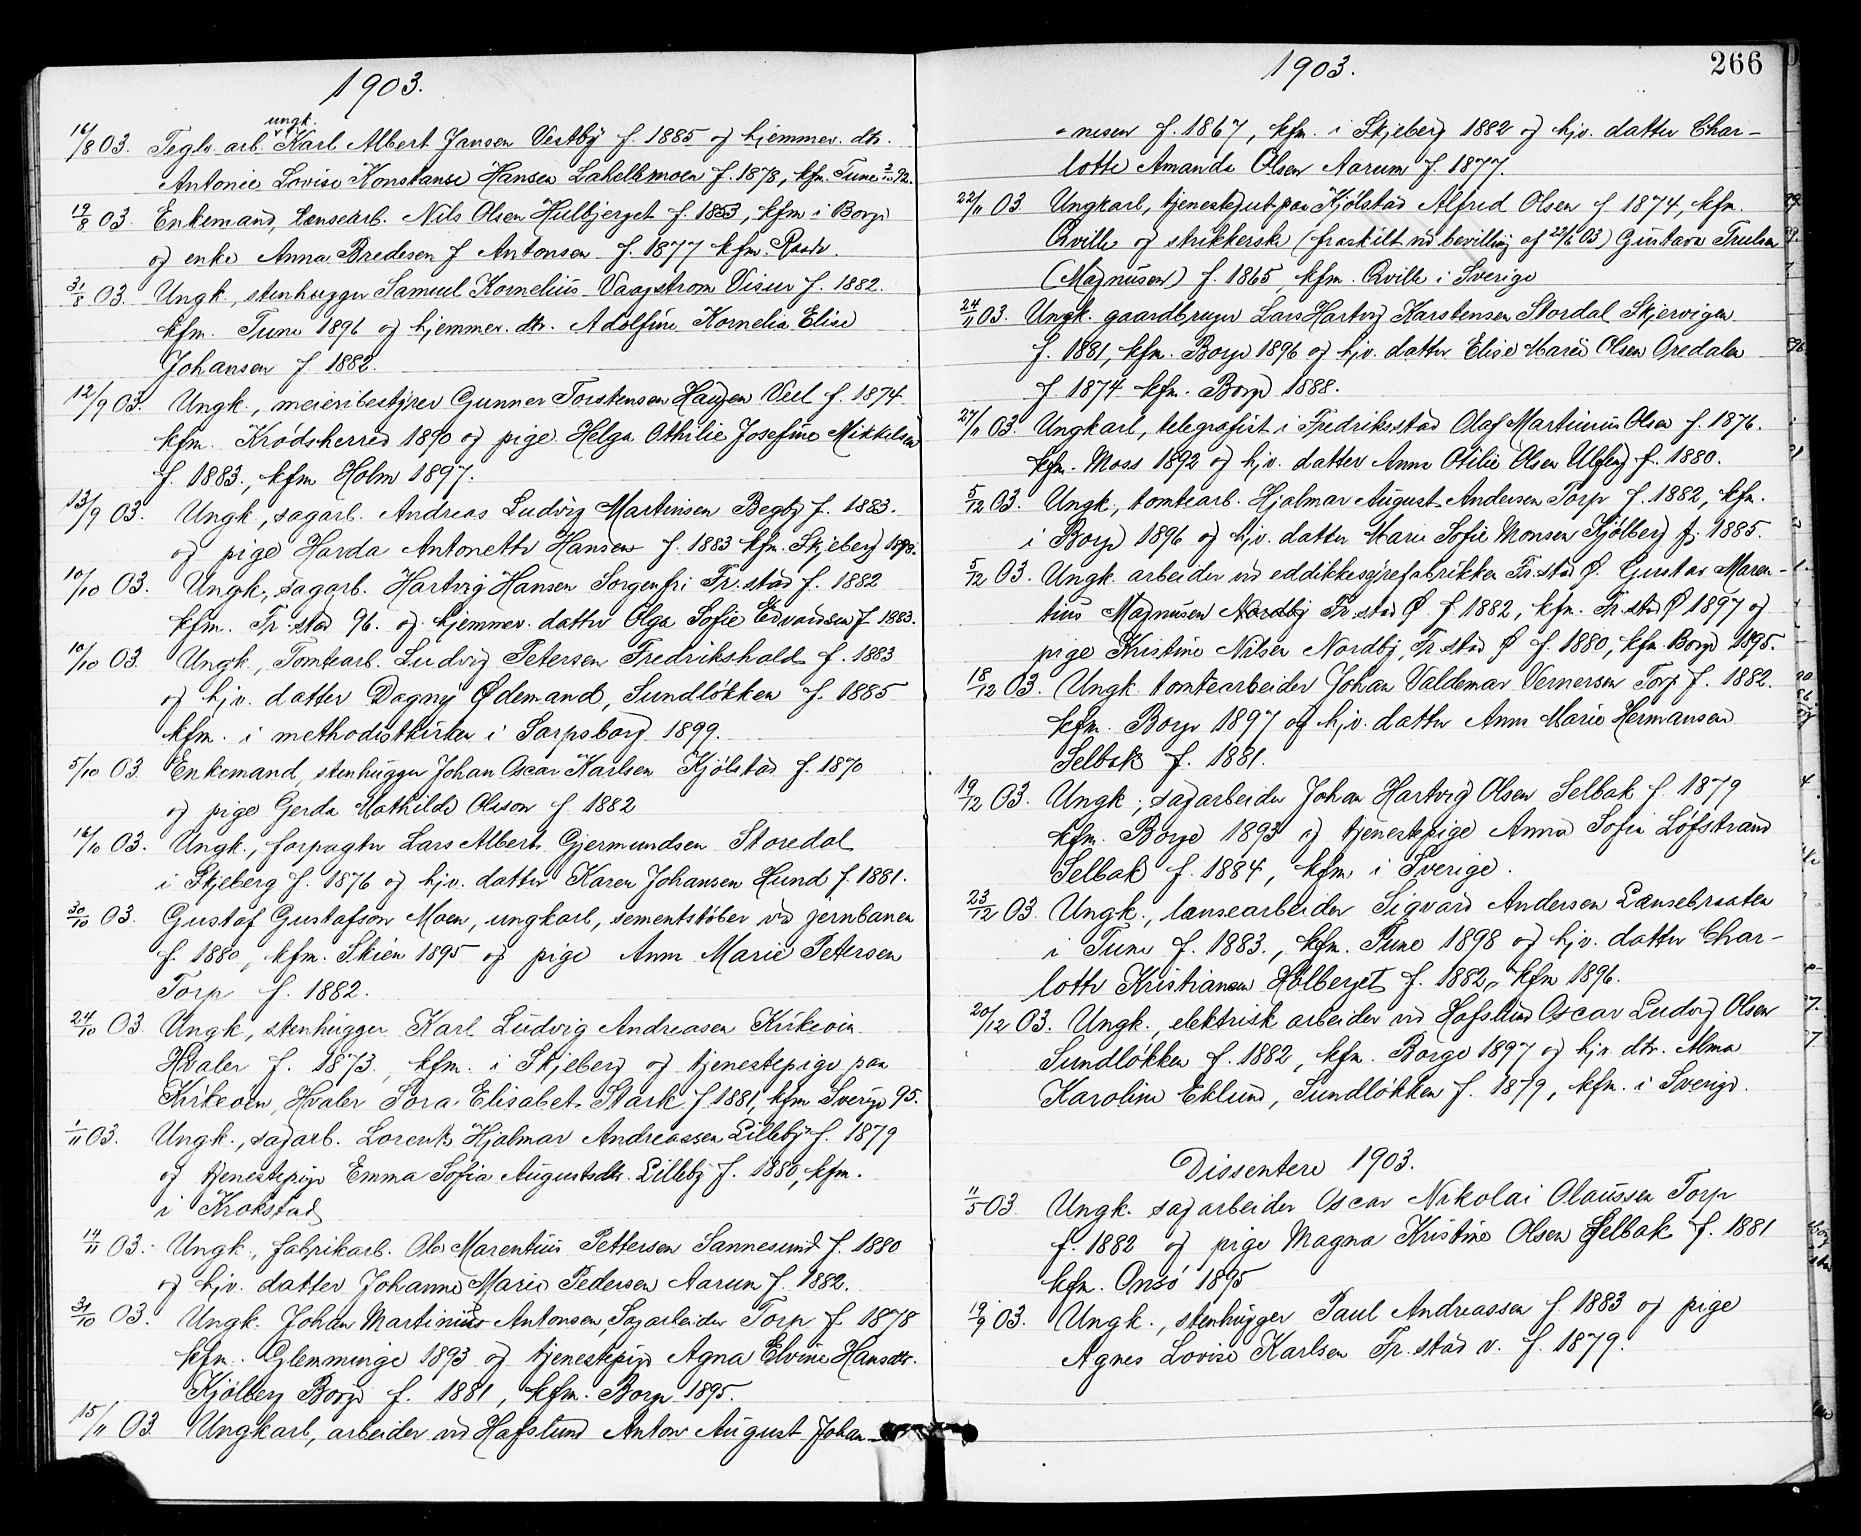 1903.
16/8 03. Tegls. arb. ungk. Karl Albert Jansen Vestby f. 1885 og hjemmev. dtr.
Antonie Lovise Konstanse Hansen Lakellemoen f. 1878, kfm. Tune 2/10 92.
19/8 03. Enkemand, lensearb. Nils Olsen Hulbjerget f. 1853, kfm i Borge
og enke Anna Bredesen f Antonsen f. 1877 kfm. Raade.
31/8 03. Ungk., stenhugger Samuel Kornelius Vaagstrøm Visur f. 1882.
kfm. Tune 1896 og hjemmev. dtr. Adolfine Kornelia Elise
Johansen f. 1882.
12/9 03. Ungk., meieribestyrer Gunner Torstensen Haugen Veel f. 1874
kfm. Krødsherred 1890 og pige Helga Othilie Josefine Mikkelsen
f. 1883., kfm Holm 1897.
13/9 03. Ungk., sagarb. Andreas Ludvig Martinsen Begby f. 1883.
og pige Harda Antonette Hansen f. 1883 kfm. Skjeberg 1898.
10/10 03. Ungk., sagarb. Hartvig Hansen Sorgenfri Fr.stad f. 1882
kfm. Fr.stad 96. og hjemmev. datter Olga Sofie Edvardsen f. 1883.
10/10 03. Ungk., Tomtearb. Ludvig Petersen Fredrikshald f. 1883
og hjv. datter Dagny Ødemand, Sundløkken f. 1885
kfm. i methodistkirken i Sarpsborg 1899.
5/10 03. Enkemand, stenhugger Johan Oscar Karlsen Kjølstad f. 1870
og pige Gerda Mathilde Olsson f. 1882
16/10 03. Ungk., forpagter Lars Albert Gjermundsen Storedal
i Skjeberg f. 1876 og hjv. datter Karen Johansen Hund f. 1881.
30/10 03. Gustaf Gustafson Moen, ungkarl, sementstøber ved jernbanen
f. 1880, kfm. Skien 1895 og pige Anna Marie Petersen
Torp f. 1882.
24/10 03. Ungk., stenhugger Karl Ludvig Andreasen Kirkeøen
Hvaler f. 1873., kfm. i Skjeberg og tjenestepige paa
Kirkeøen, Hvaler Tora Elisabet Stark f. 1881, kfm Sverige 95.
1/11 03. Ungk., sagarb. Lorents Hjalmar Andreassen Lilleby f. 1879
og tjenestepige Emma Sofia Augustsdtr. Lilleby f. 1880, kfm.
i Krokstad
14/11 03. Ungk., fabrikarb. Ole Marentius Pettersen Sannesund f. 1880
og hjv. datter Johanne Marie Pedersen Aarum f. 1882.
31/10 03. Ungk. Johan Martinius Antonsen, Sagarbeider Torp f. 1878
kfm. Glemminge 1893 og tjenestepige Agna Elvine Hansdtr.
Kjølberg Borge f. 1881, kfm. Borge 1895.
15/11 03. Ungkarl, arbeider ved Hafslund Anton August Johan-
1903.
266
-nesen f. 1867, kfm. i Skjeberg 1882 og hjv. datter Char-
lotte Amanda Olsen Aarum f. 1877.
22/11 03 Ungkarl, tjenestegut paa Kjølstad Alfred Olsen f 1874, kfm.
Qville og strikkerske (fraskilt ved bevilling af 22/6 03) Gustava Trulsen
(Magnusen) f. 1865, kfm. Qville i Sverige
24/11 03. Ungk. gaardbruger Lars Hartvig Karstensen Stordal Skjervigen
f. 1881, kfm. Borge 1896 og hjv. datter Elise Marie Olsen Oredalen
f. 1874 kfm. Borge 1888.
27/11 03. Ungkarl, telegrafist i Fredriksstad Olaf Martinius Olsen f. 1876.
kfm. Moss 1892 og hjv. datter Anna Otilie Olsen Ulfeng f. 1880.
5/12 03. Ungk, tomtearb. Hjalmar August Andersen Torp f. 1882, kfm.
i Borge 1896 og hjv. datter Marie Sofie Monsen Kjølberg f. 1885.
5/12 03. Ungk. arbeider ved eddikkesyrefabrikken Fr.stad Ø. Gustav Maren-
tius Magnusen Nordby Fr.stad Ø f. 1882, kfm. Fr.stad Ø 1897 og
pige Kristine Nilsen Nordby, Fr.stad Ø f. 1880, kfm Borge 1895.
18/12 03. Ungk. tomtearbeider Johan Valdemar Vernersen Torp f. 1882.
kfm. Borge 1897 og hjv. datter Anna Marie Hermansen
Selbak f. 1881.
19/12 03. Ungk., sagarbeider Johan Hartvig Olsen Selbak f. 1879
kfm. Borge 1893 og tjenestepige Anna Sofia Løfstrand
Selbak f. 1884, kfm. i Sverige.
23/12 03. Ungk., lænsearbeider Sigvard Andersen Lænsebraaten
i Tune f. 1883., kfm. Tune 1898 og hjv. datter Char-
lotte Kristiansen Hølberget f. 1882, kfm 1896.
20/12 03. Ungk., elektrisk arbeider ved Hafslund Oscar Ludvig Olsen
Sundløkken f. 1882, kfm. Borge 1897 og hjv. dtr. Alma
Karoline Eklund, Sundløkken f. 1879, kfm. i Sverige.
Dissentere 1903.
11/5 03. Ungk. sagarbeider Oscar Nikolai Olaussen Torp
f. 1882 og pige Magna Kristine Olsen Selbak f. 1881
kfm. Onsø 1895
19/9 03. Ungk., stenhugger Paul Andreassen f. 1883 og pige
Agnes Lovise Karlsen Fr.stad v. f. 1879.